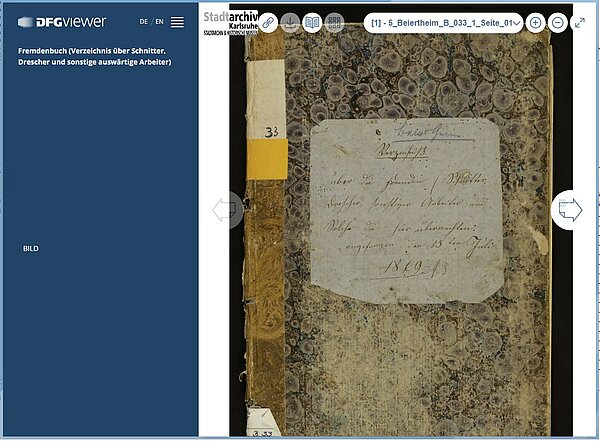 DFGVIEWER
DE / EN
Fremdenbuch (Verzeichnis über Schnitter,
Drescher und sonstige auswärtige Arbeiter)
BILD
Stadtarchiv
Karlsruhe
STADTARCHIV & HISTORISCHE MUSEEN
[1] - 5_Beiertheim_B_033_1_Seite_01
33
Beiertheim
Verzeichniß
über die Fremden (Schnitter,
Drescher sonstige Arbeiter und
Solche die hier übernachten
angefangen am 13 ten Juli
1869
3.33